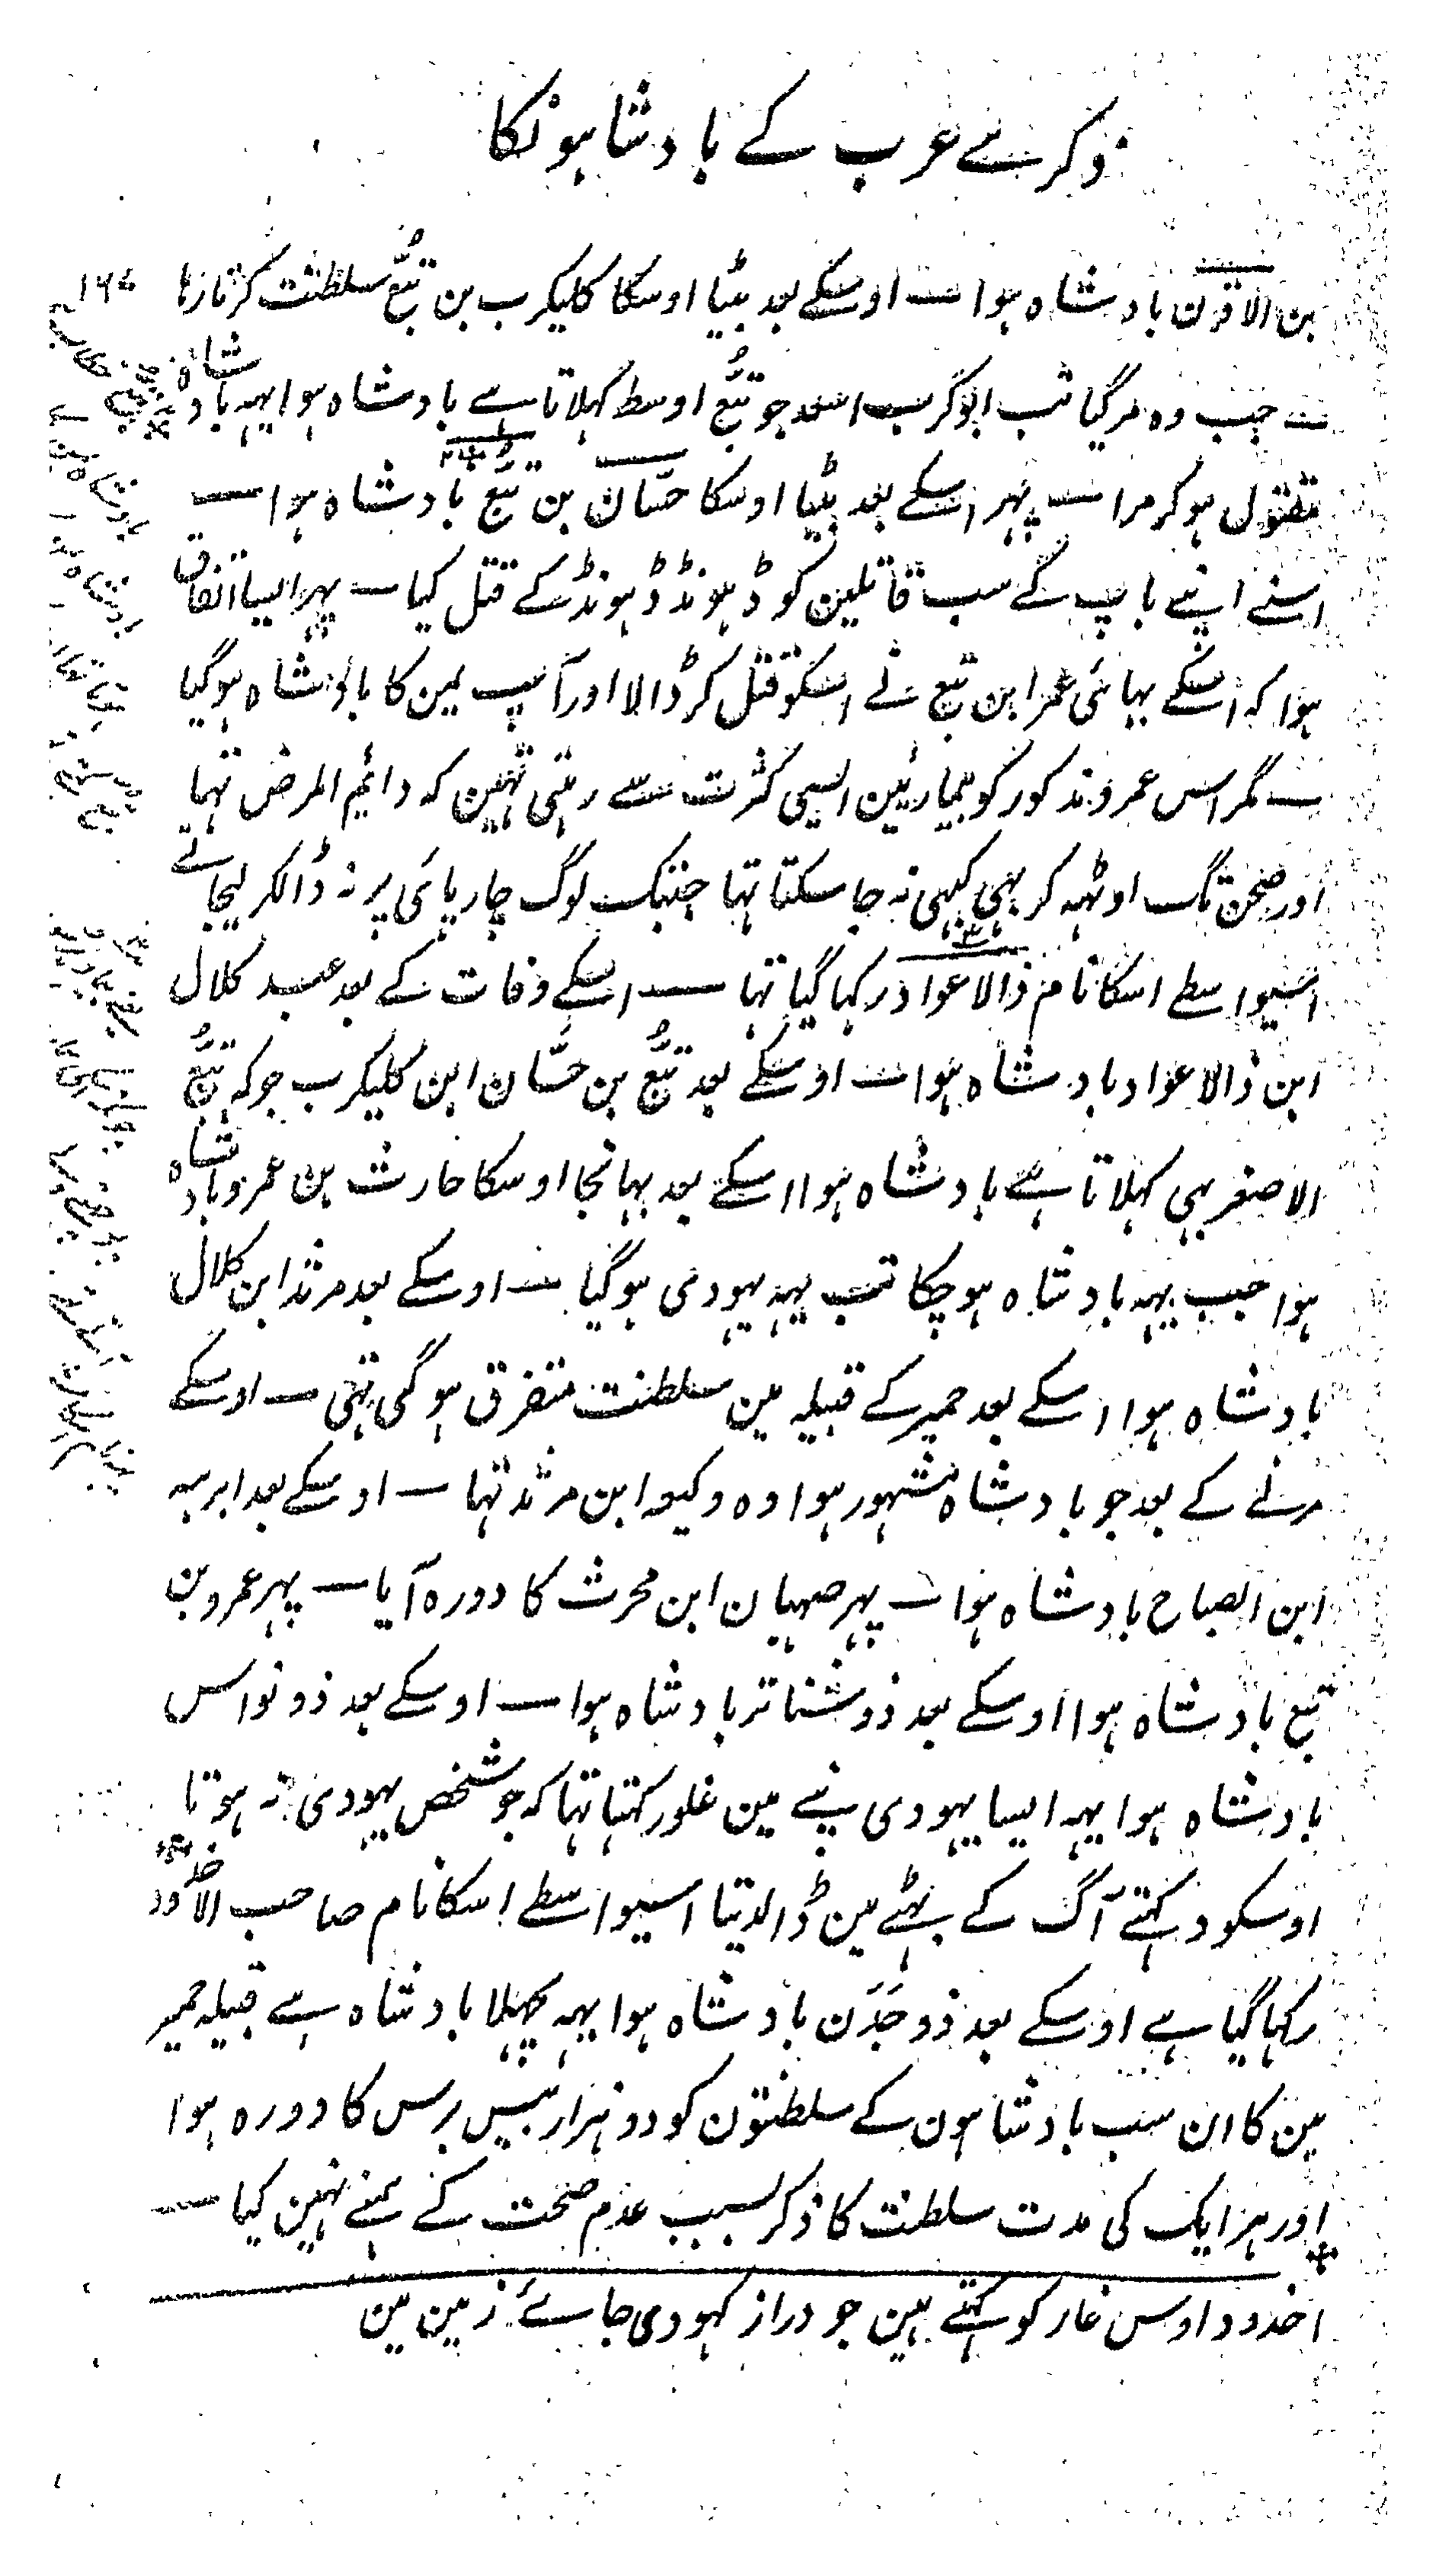 ذکر نے عرب کے بادشاہونکا
۱۶۷
بن الاقرن بادشاہ ہوا ـــ اوسکے بعد بیٹا اوسکا کلیکرب بن تبُّع سلطنت کرتا رہا
ـــ جب وہ مر گیا تب ابو کرب اسعد جو تبُّع اوسط کہلاتا ہے بادشاہ ہوا یہہ بادشاہ
مقتول ہو کر مرا ـــ پہر اسکے بعد بیٹا اوسکا حسّان بن تبُّع بادشاہ ہوا ـــ
اسنے اپنے باپ کے سب قاتلین کو ڈہونڈ ڈہونڈ کے قتل کیا ـــ پہر ایسا اتفاق
ہوا کہ اسکے بہائی عمر ابن تبع نے اسکو قتل کر ڈالا اور آپ یمن کا بادشاہ ہو گیا
ـــ مگر اس عمرو مذکور کو بیماریئین ایسی کثرت سے رہتی تہین کہ دائم المرض تہا
اور صحن تک اوٹہہ کر بہی کبہی نہ جا سکتا تہا جبتک لوگ چارپائی پر نہ ڈالکر لیجاتے
اسیواسطے اسکا نام ذالاعواد رکہا گیا تہا ـــ اسکے وفات کے بعد عبد کلال
ابن ذالاعواد بادشاہ ہوا ـــ اوسکے بعد تبُّع بن حسَّان ابن کلیکرب جو کہ تبُّع
الاصغر بہی کہلاتا ہے بادشاہ ہوا اسکے بعد بہانجا اوسکا حارث بن عمرو بادشاہ
ہوا جب یہہ بادشاہ ہو چکا تب یہہ یہودی ہو گیا ـــ اوسکے بعد مرثد ابن کلال
بادشاہ ہوا اسکے بعد حمیر کے قبیلہ مین سلطنت متفرق ہو گی تہی ـــ اوسکے
مرنے کے بعد جو بادشاہ مشہور ہوا وہ وکیعہ ابن مرثد تہا ـــ اوسکے بعد ابرہہ
ابن الصباح بادشاہ ہوا ـــ پہر صہبان ابن محرث کا دورہ آیا ـــ پہر عمرو بن
تبع بادشاہ ہوا اوسکے بعد ذو شناتر بادشاہ ہوا ـــ اوسکے بعد ذو نواس
بادشاہ ہوا یہہ ایسا یہودی پنے مین غلو رکہتا تہا کہ جو شخص یہودی نہ ہوتا
اوسکو دہکتے آگ کے بہٹے مین ڈالدیتا اسیواسطے اسکا نام صاحب الاخدود
رکہا گیا ہے اوسکے بعد ذو جَدَن بادشاہ ہوا یہہ پچہلا بادشاہ ہے قبیلہ حمیر
مین کا ان سب بادشاہون کے سلطنتون کو دو ہزار بیس برس کا دورہ ہوا
اور ہر ایک کی مدت سلطنت کا ذکر بسبب عدم صحت کے ہمنے نہین کیا ـــ
اخدود اوس غار کو کہتے ہین جو دراز کہودی جائے زمین مین